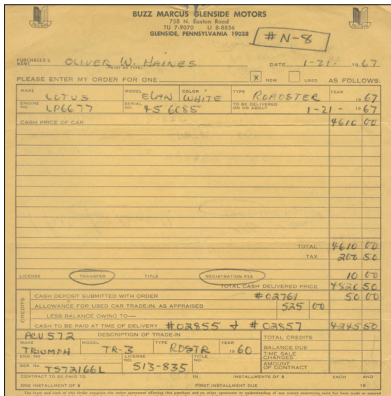 BUZZ MARCUS GLENSIDE MOTORS
758 N. Easton Road
TU 7-9070 LI 8-8556
GLENSIDE, PENNSYLVANIA 19038
# N-8
PURCHASER'S NAME OLIVER W. HAINES 1-21- 1967
PLEASE ENTER MY ORDER FOR ONE X NEW USED AS FOLLOWS:
MAKE MODEL COLOR TYPE YEAR
LOTUS ELAN WHITE ROADSTER 1967
ENGINE NO. LP6677 SERIAL NO. 45 6085 TO BE DELIVERED ON OR ABOUT 1-21- 1967
CASH PRICE OF CAR 4610 00
TOTAL 4610 00
TAX 200 50
LICENSE TRANSFER TITLE REGISTRATION FEE 10 00
TOTAL CASH DELIVERED PRICE 4820 50
CREDITS CASH DEPOSIT SUBMITTED WITH ORDER #02761 50 00
ALLOWANCE FOR USED CAR TRADE-IN, AS APPRAISED 525 00
LESS BALANCE OWING TO—
CASH TO BE PAID AT TIME OF DELIVERY #02855 + #02857 4245 50
DESCRIPTION OF TRADE-IN TOTAL CREDITS
MAKE MODEL TYPE YEAR BALANCE DUE
TRIUMPH TR-3 RDSTR 1960 TIME SALE CHARGES
SER. No. TS72166L LICENSE NO. 513-835 TITLE NO. AMOUNT OF CONTRACT
CONTRACT TO BE PAID TO IN INSTALLMENTS OF $ EACH AND
ONE INSTALLMENT OF $ FIRST INSTALLMENT DUE 19